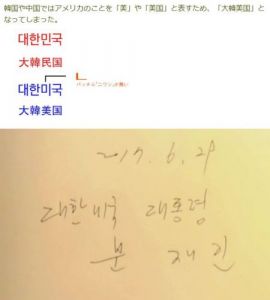 韓国や中国ではアメリカのことを「美」や「美国」と表すため、「大韓美国」と
なってしまった。
대한민국
大韓民国
パッチム「ニウン」が無い
대한미국
大韓美国
2017. 6. 28
대한미국 대통령
문 재 인